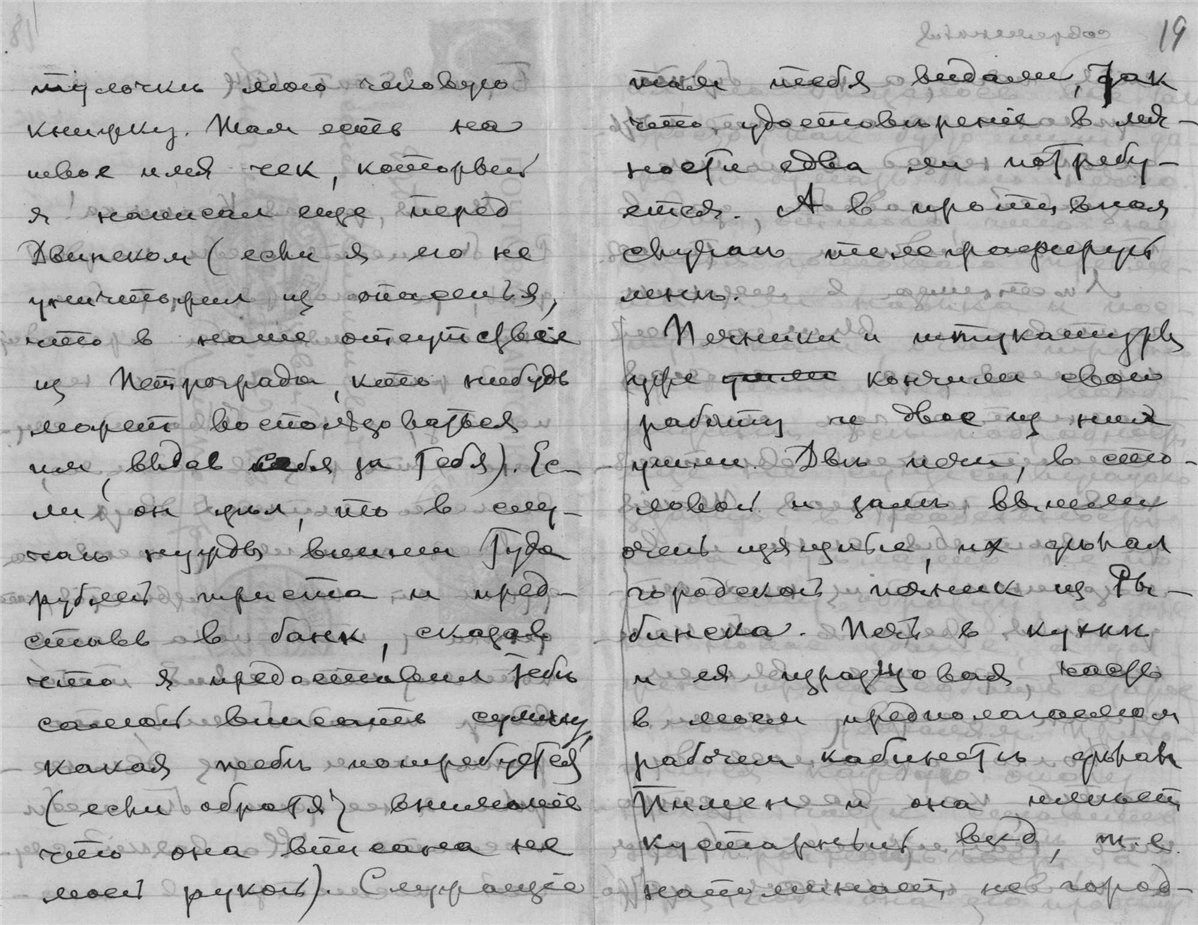 тулочки мою чековую
книжку. Там есть на
твое имя чек, который
я написал еще перед
Двинском (если я его не
уничтожил из опасенья,
что в наше отсутствие
из Петрограда кто нибудь
может воспользоваться
им, выдав себя за Тебя). Ес-
ли он цел, то в слу-
чаѣ нужды впиши Туда
рублей триста и пред-
ставь в банк, сказав
что я предоставил Тебѣ
самой вписать сумму,
какая тебѣ потребуется
(если обратят внимание
что она вписана не
моей рукой). Служащие
19
там тебя видали, так
что удостовѣрение в лич-
ности едва ли потребу-
ется. А в противном
случаѣ телеграфируй
мнѣ.
Печники и штукатуры
уже кончили свою
работу и двое из них
ушли. Двѣ печи, в сто-
ловой и залѣ вышли
очень изящные, их дѣлал
городской печник из Ры-
бинска. Печь в кухнѣ
и ея изразцовая часть
в моем предполагаемом
рабочем кабинетѣ дѣлал
Пимен и она имѣет
кустарный вид, т.е.
напоминает не город-